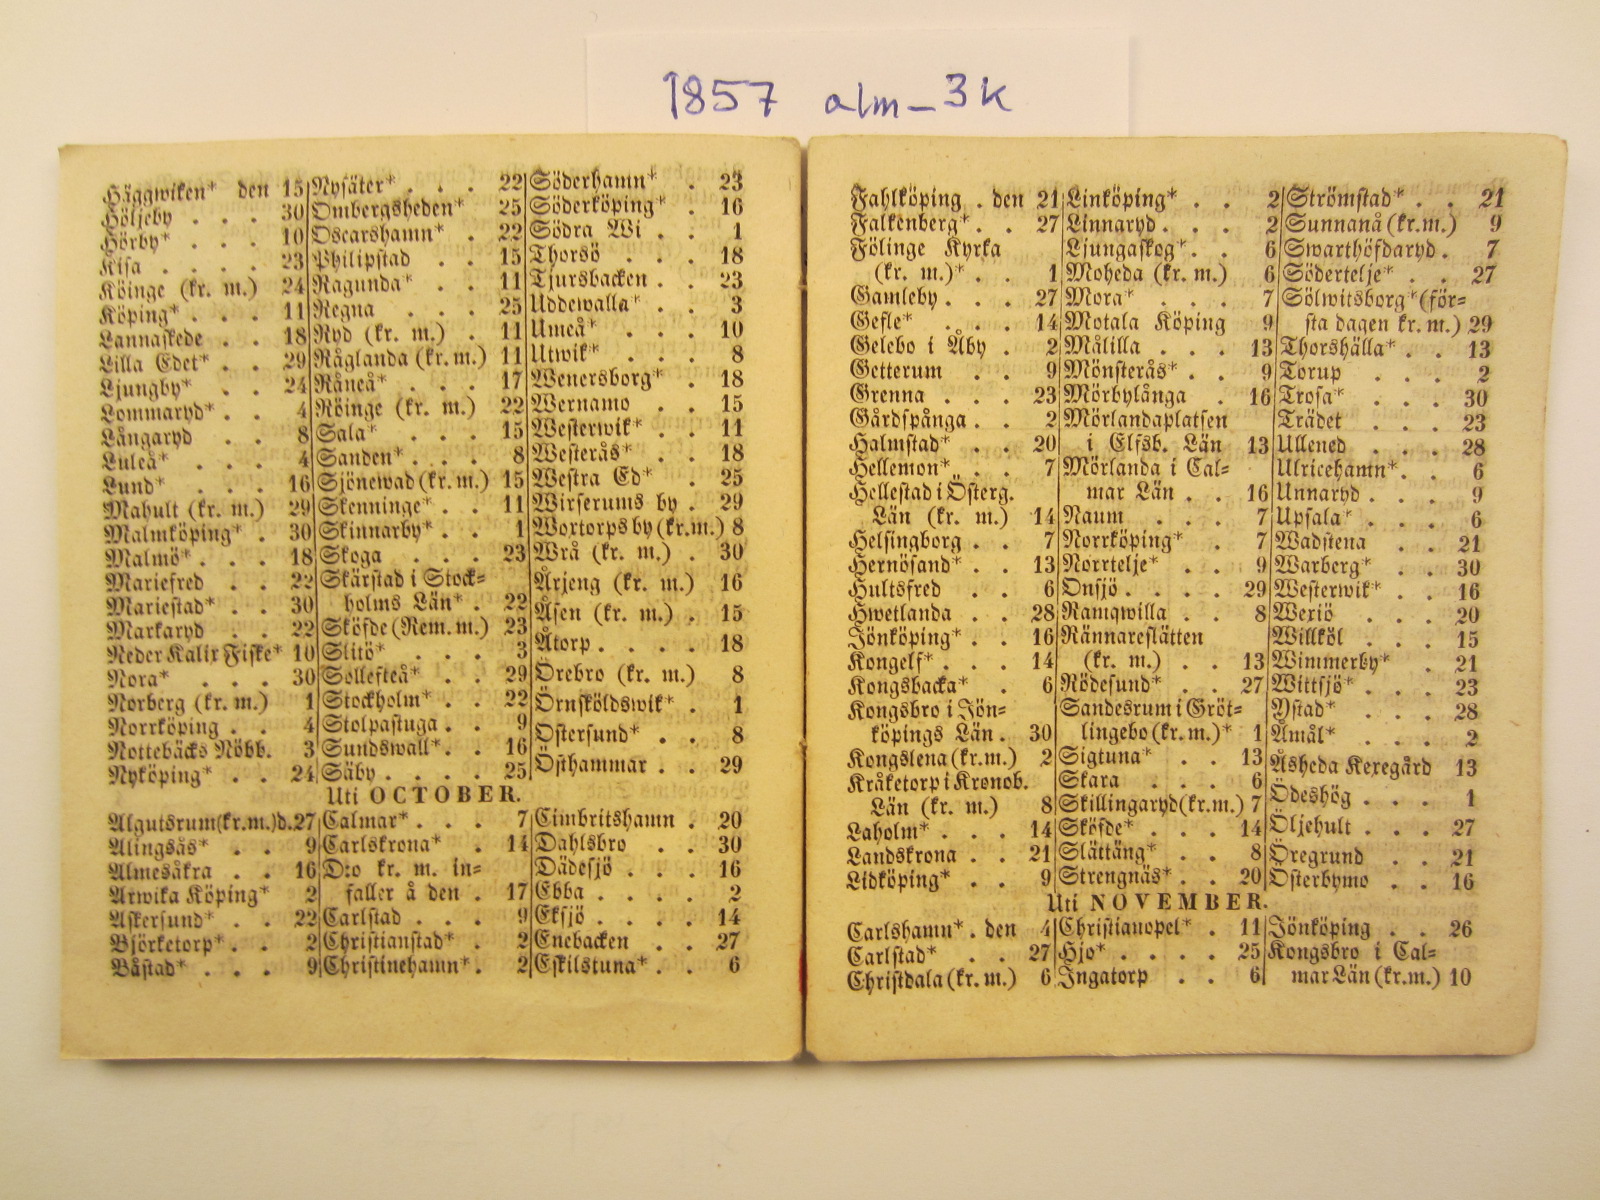 1857 alm_3k
Häggwiken* den 15
Höljeby . . . 30
Hörby* . . . 10
Kisa . . . . 23
Köinge (kr. m.) 24
Köping* . . . 11
Lannaskede . . 18
Lilla Edet* . . 29
Ljungby* . . 24
Lommaryd* . . 4
Långaryd . . 8
Luleå* . . . 4
Lund* . . . 16
Mahult (kr. m.) 29
Malmköping* . 30
Malmö* . . . 18
Mariefred . . 22
Mariestad* . . 30
Markaryd . . 22
Neder Kalix Fiske* 10
Nora* . . . 30
Norberg (kr. m.) 1
Norrköping . . 4
Nottebäcks Nöbb. 3
Nyköping* . . 24
Nysäter* . . . 22
Ombergsheden* 25
Oscarshamn* . 22
Philipstad . . 15
Ragunda* . . 11
Regna . . . 25
Ryd (kr. m.) . 11
Råglanda (kr. m.) 11
Råneå* . . . 17
Röinge (kr. m.) 22
Sala* . . . 15
Sanden* . . . 8
Sjönewad (kr. m.) 15
Skenninge* . . 11
Skinnarby* . . 1
Skoga . . . 23
Skärstad i Stock=
holms Län* . 22
Sköfde (Rem. m.) 23
Slitö* . . . 3
Sollefteå* . . 29
Stockholm* . . 22
Stolpastuga . . 9
Sundswall* . . 16
Säby . . . . 25
Söderhamn* . 23
Söderköping* . 16
Södra Wi . . 1
Thorsö . . . 18
Tjursbacken . 23
Uddewalla* . . 3
Umeå* . . . 10
Utwik* . . . 8
Wenersborg* . 18
Wernamo . . 15
Westerwik* . . 11
Westerås* . . 18
Westra Ed* . 25
Wirserums by . 29
Wortorps by (kr. m.) 8
Wrå (kr. m.) . 30
Årjeng (kr. m.) 16
Åsen (kr. m.) . 15
Åtorp . . . 18
Örebro (kr. m.) 8
Örnsköldswik* . 1
Östersund* . . 8
Östhammar . . 29
Uti OCTOBER.
Algutsrum (kr. m.) d. 27
Alingsås* . . 9
Almesåkra . . 16
Arwika Köping* 2
Askersund* . . 22
Björketorp* . . 2
Båstad* . . . 9
Calmar* . . . 7
Carlskrona* . 14
D:o kr. m. in=
faller å den . 17
Carlstad . . . 9
Christianstad* . 2
Christinehamn* . 2
Cimbritshamn . 20
Dahlsbro . . 30
Dädesjö . . . 16
Ebba . . . . 2
Eksjö . . . 14
Enebacken . . 27
Eskilstuna* . . 6
Fahlköping . den 21
Falkenberg* . . 27
Fölinge Kyrka
(kr. m.)* . . 1
Gamleby . . . 27
Gefle* . . . 14
Gelebo i Åby . 2
Getterum . . 9
Grenna . . . 23
Gårdspånga . . 2
Halmstad* . . 20
Hellemon* . . 7
Hellestad i Österg.
Län (kr. m.) 14
Helsingborg . . 7
Hernösand* . . 13
Hultsfred . . 6
Hwetlanda . . 28
Jönköping* . . 16
Kongelf* . . . 14
Kongsbacka* . 6
Kongsbro i Jön=
köpings Län . 30
Kongslena (kr. m.) 2
Kråketorp i Kronob.
Län (kr. m.) 8
Laholm* . . . 14
Landskrona . . 21
Lidköping* . . 9
Linköping* . . 2
Linnaryd . . . 2
Ljungaskog* . . 6
Moheda (kr. m.) 6
Mora* . . . 7
Motala Köping 9
Målilla . . . 13
Mönsterås* . . 9
Mörbylånga . 16
Mörlandaplatsen
i Elfsb. Län 13
Mörlanda i Cal=
mar Län . . 16
Naum . . . 7
Norrköping* . 7
Norrtelje* . . 9
Onsjö . . . . 29
Ramqwilla . . 8
Rännareslätten
(kr. m.) . . 13
Rödesund* . . 27
Sandesrum i Gröt=
lingebo (kr. m.)* 1
Sigtuna* . . 13
Skara . . . 6
Skillingaryd (kr. m.) 7
Sköfde* . . . 14
Slättäng* . . 8
Strengnäs* . . 20
Strömstad* . . 21
Sunnanå (kr. m.) 9
Swarthöfdaryd . 7
Södertelje* . . 27
Sölwitsborg* (för=
sta dagen kr. m.) 29
Thorshälla* . . 13
Torup . . . 2
Trosa* . . . 30
Trädet . . . 23
Ullened . . . 28
Ulricehamn* . . 6
Unnaryd . . . 9
Upsala* . . . 6
Wadstena . . 21
Warberg* . . 30
Westerwik* . . 16
Wexiö . . . 20
Willköl . . . 15
Wimmerby* . . 21
Wittsjö* . . . 23
Ystad* . . . 28
Åmål* . . . 2
Åsheda Kexegård 13
Ödeshög . . . 1
Öljehult . . . 27
Öregrund . . 21
Österbymo . . 16
Uti NOVEMBER.
Carlshamn* . den 4
Carlstad* . . 27
Christdala (kr. m.) 6
Christianopel* . 11
Hjo* . . . . 25
Ingatorp . . 6
Jönköping . . 26
Kongsbro i Cal=
mar Län (kr. m.) 10